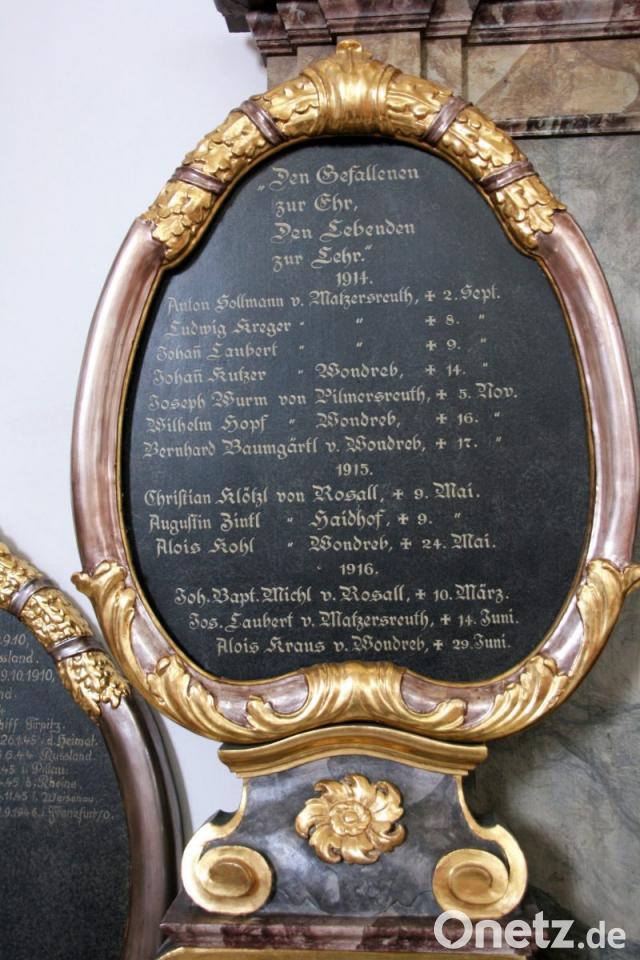 „Den Gefallenen
zur Ehr,
Den Lebenden
zur Lehr.“
1914.
Anton Sollmann v. Matzersreuth, ✠ 2. Sept.
Ludwig Kreger " " ✠ 8. "
Johañ Laubert " " ✠ 9. "
Johañ Kutzer " Wondreb, ✠ 14. "
Joseph Wurm von Pilmersreuth, ✠ 5. Nov.
Wilhelm Hopf " Wondreb, ✠ 16. "
Bernhard Baumgärtl v. Wondreb, ✠ 17. "
1915.
Christian Klötzl von Rosall, ✠ 9. Mai.
Augustin Zintl " Haidhof, ✠ 9. "
Alois Kohl " Wondreb, ✠ 24. Mai.
1916.
Joh. Bapt. Michl v. Rosall, ✠ 10. März.
Jos. Laubert v. Matzersreuth, ✠ 14. Juni.
Alois Kraus v. Wondreb, ✠ 29. Juni.
9.10,
ssland.
9.10.1910,
nd.
4
hiff Tirpitz.
26.1.45 i. d. Heimat.
.6.44 Russland.
45 i. Pillau.
.45 b. Rheine.
4.11.45 i. Warsenau.
2.9.1946 i. Frankfurt/O.
Onetz.de